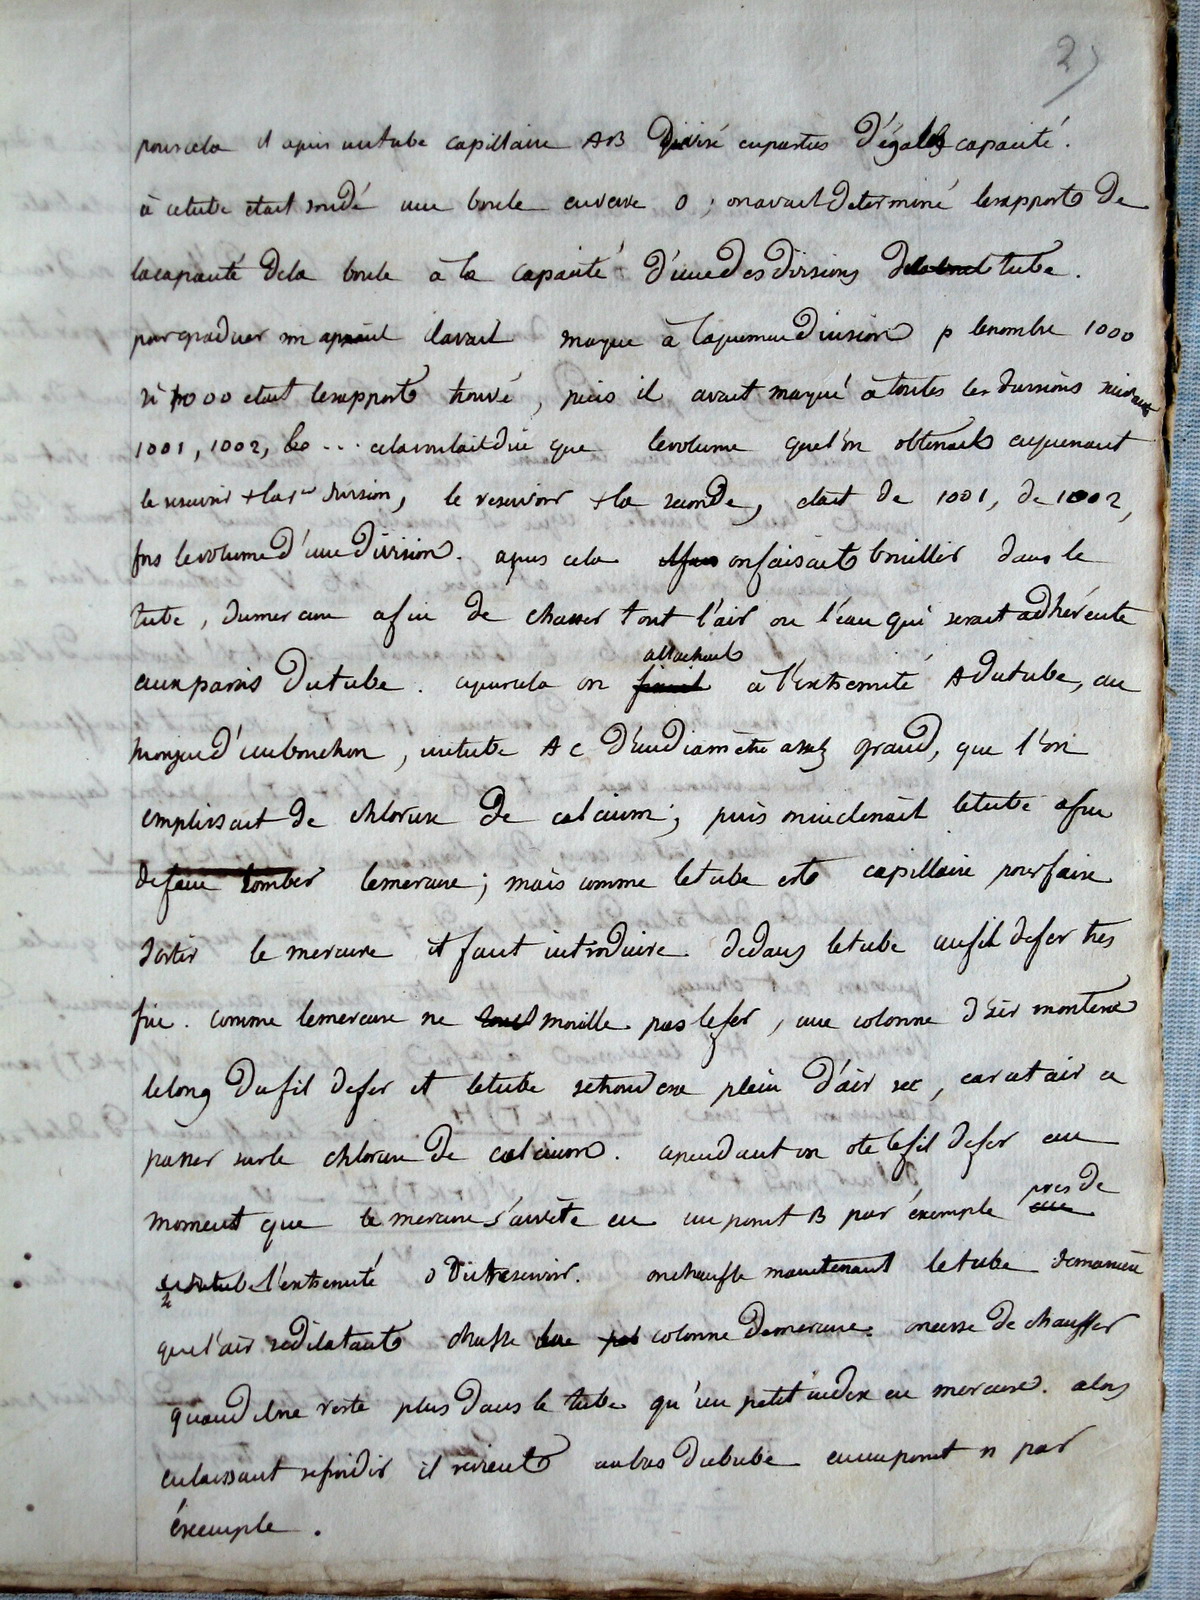 27
pour cela il a pris un tube capillaire AB divisé en parties d'égale capacité.
à ce tube etait soudé une boule en verre O ; on avait determiné le rapport de
la capacité de la boule à la capacité d'une des divisions du tube.
pour graduer son appareil il avait marqué à la premiere division p le nombre 1000
si 1000 etait le rapport trouvé, puis il avait marqué à toutes les divisions suivantes
1001, 1002, &c ... cela voulait dire que le volume que l'on obtenait en prenant
le reservoir + la 1re division, le reservoir + la seconde, etait de 1001, de 1002,
fois le volume d'une division. apres cela on faisait bouillir dans le
tube, du mercure afin de chasser tout l'air ou l'eau qui serait adhérente
aux parois du tube. apres cela on attachait à l'extremité A du tube, au
moyen d'un bouchon, un tube AC d'un diamètre assez grand, que l'on
emplissait de chlorure de calcium ; puis on inclinait le tube afin
de faire tomber le mercure ; mais comme le tube est capillaire pour faire
sortir le mercure il faut introduire dedans le tube un fil de fer tres
fin. comme le mercure ne mouille pas le fer, une colonne d'air montera
le long du fil de fer et le tube se trouvera plein d'air sec, car cet air a
passer sur le chlorure de calcium. cependant on ote le fil de fer au
moment que le mercure s'arrête en un point B par éxemple pres de
l'extremité O du reservoir. on chauffe maintenant le tube de maniere
que l'air se dilatant chasse la colonne de mercure. on cesse de chauffer
quand il ne reste plus dans le tube qu'un petit index en mercure. alors
en laissant refroidir il revient au bas du tube en un point n par
éxemple.